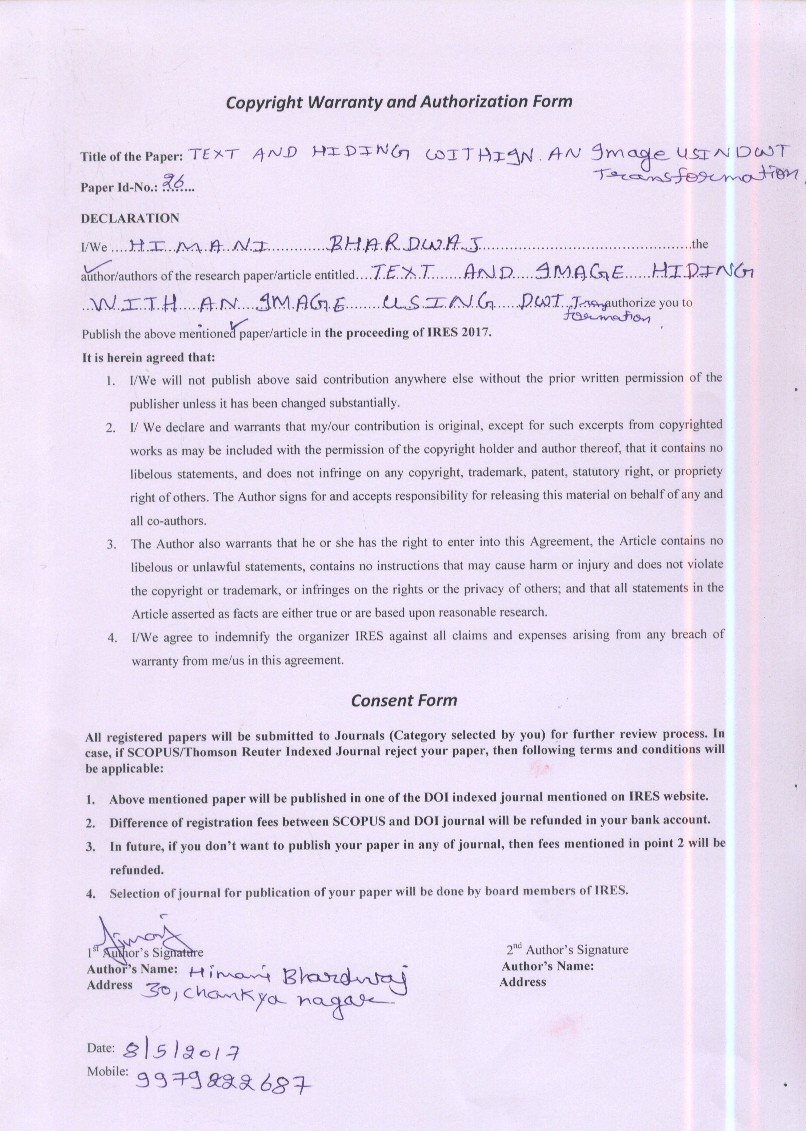 Copyright Warranty and Authorization Form
Title of the Paper: TEXT AND HIDING WITHIGN. AN Image USIN DWT
Transformation
Paper Id-No.: 26....
DECLARATION
I/We ....HIMANI............BHARDWAJ..........................................the
author/authors of the research paper/article entitled...TEXT......AND....IMAGE.....HIDING
..WITH..AN..IMAGE.......USING.....DWT..Transauthorize you to
formation
Publish the above mentioned paper/article in the proceeding of IRES 2017.
It is herein agreed that:
1. I/We will not publish above said contribution anywhere else without the prior written permission of the
publisher unless it has been changed substantially.
2. I/ We declare and warrants that my/our contribution is original, except for such excerpts from copyrighted
works as may be included with the permission of the copyright holder and author thereof, that it contains no
libelous statements, and does not infringe on any copyright, trademark, patent, statutory right, or propriety
right of others. The Author signs for and accepts responsibility for releasing this material on behalf of any and
all co-authors.
3. The Author also warrants that he or she has the right to enter into this Agreement, the Article contains no
libelous or unlawful statements, contains no instructions that may cause harm or injury and does not violate
the copyright or trademark, or infringes on the rights or the privacy of others; and that all statements in the
Article asserted as facts are either true or are based upon reasonable research.
4. I/We agree to indemnify the organizer IRES against all claims and expenses arising from any breach of
warranty from me/us in this agreement.
Consent Form
All registered papers will be submitted to Journals (Category selected by you) for further review process. In
case, if SCOPUS/Thomson Reuter Indexed Journal reject your paper, then following terms and conditions will
be applicable:
1. Above mentioned paper will be published in one of the DOI indexed journal mentioned on IRES website.
2. Difference of registration fees between SCOPUS and DOI journal will be refunded in your bank account.
3. In future, if you don't want to publish your paper in any of journal, then fees mentioned in point 2 will be
refunded.
4. Selection of journal for publication of your paper will be done by board members of IRES.
1st Author's Signature
Author's Name: Himani Bhardwaj
Address 30, chankya nagar
2nd Author's Signature
Author's Name:
Address
Date: 8/5/2017
Mobile: 9979222687